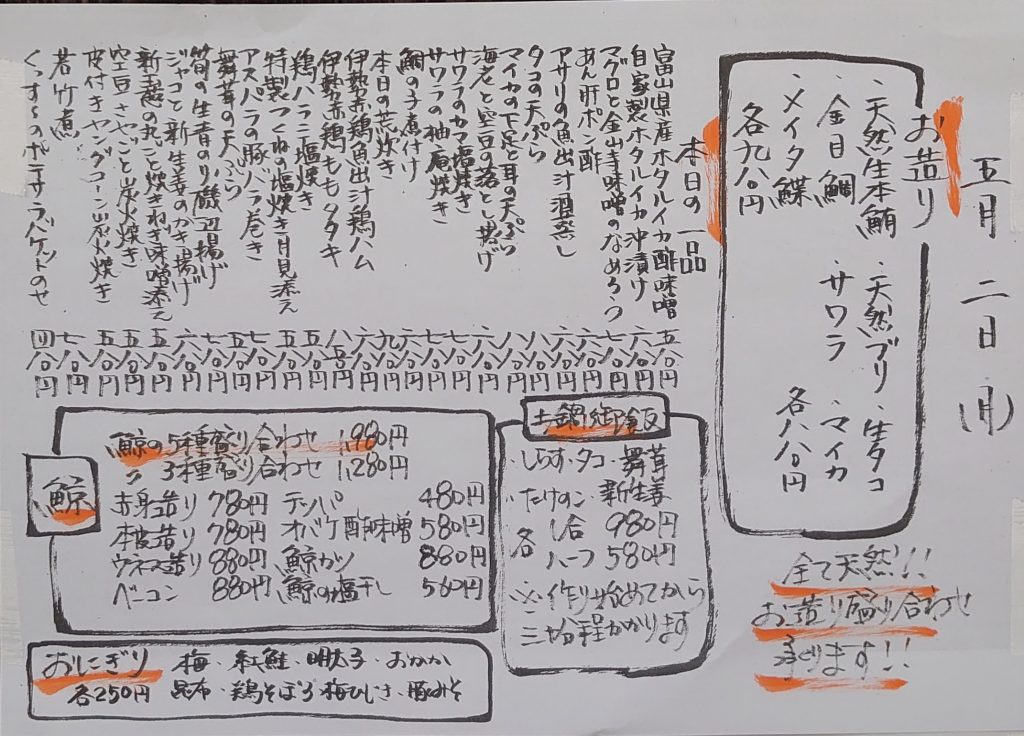 五月二日(月)
お造り
・天然生本鮪 ・天然ブリ ・生タコ
・金目鯛 ・サワラ ・マイカ
・メイタ鰈 各八八〇円
各九八〇円
全て天然!!
お造り盛り合わせ
承ります!!
本日の一品
富山県産ホタルイカ酢味噌 五八〇円
自家製ホタルイカ沖漬け 六八〇円
マグロと金山寺味噌のなめろう
あん肝ポン酢
アサリの魚出汁酒蒸し
タコの天ぷら
マイカの下足と耳の天ぷら
海老と空豆の落とし揚げ
サワラのカマ塩焼き
サワラの柚庵焼き
鯛の子煮付け
本日の荒炊き
伊勢赤鶏魚出汁鶏ハム
伊勢赤鶏ももタタキ
鶏ハラミ塩焼き
特製つくねの塩焼き月見添え
アスパラの豚バラ巻き
舞茸の天ぷら
筍の生青のり磯辺揚げ
ジャコと新生姜のかき揚げ
新玉葱の丸ごと焼きねぎ味噌添え
空豆さやごと炭火焼き 五八〇円
皮付きヤングコーン炭火焼き 五八〇円
若竹煮 七八〇円
くっす〜のポテサラバケットのせ 四八〇円
土鍋御飯
・しらす・タコ・舞茸
・たけのこ 新生姜
各 一合 980円
ハーフ 580円
※作り始めてから
三十分程かかります
鯨
鯨の5種盛り合わせ 1,980円
〃 3種盛り合わせ 1,280円
赤身造り 780円 テッパ 480円
本皮造り 780円 オバケ酢味噌 580円
ウネス造り 880円 鯨カツ 880円
ベーコン 880円 鯨の塩干し 560円
おにぎり 梅・紅鮭・明太子・おかか
各250円 昆布・鶏そぼろ 梅ひじき・豚みそ